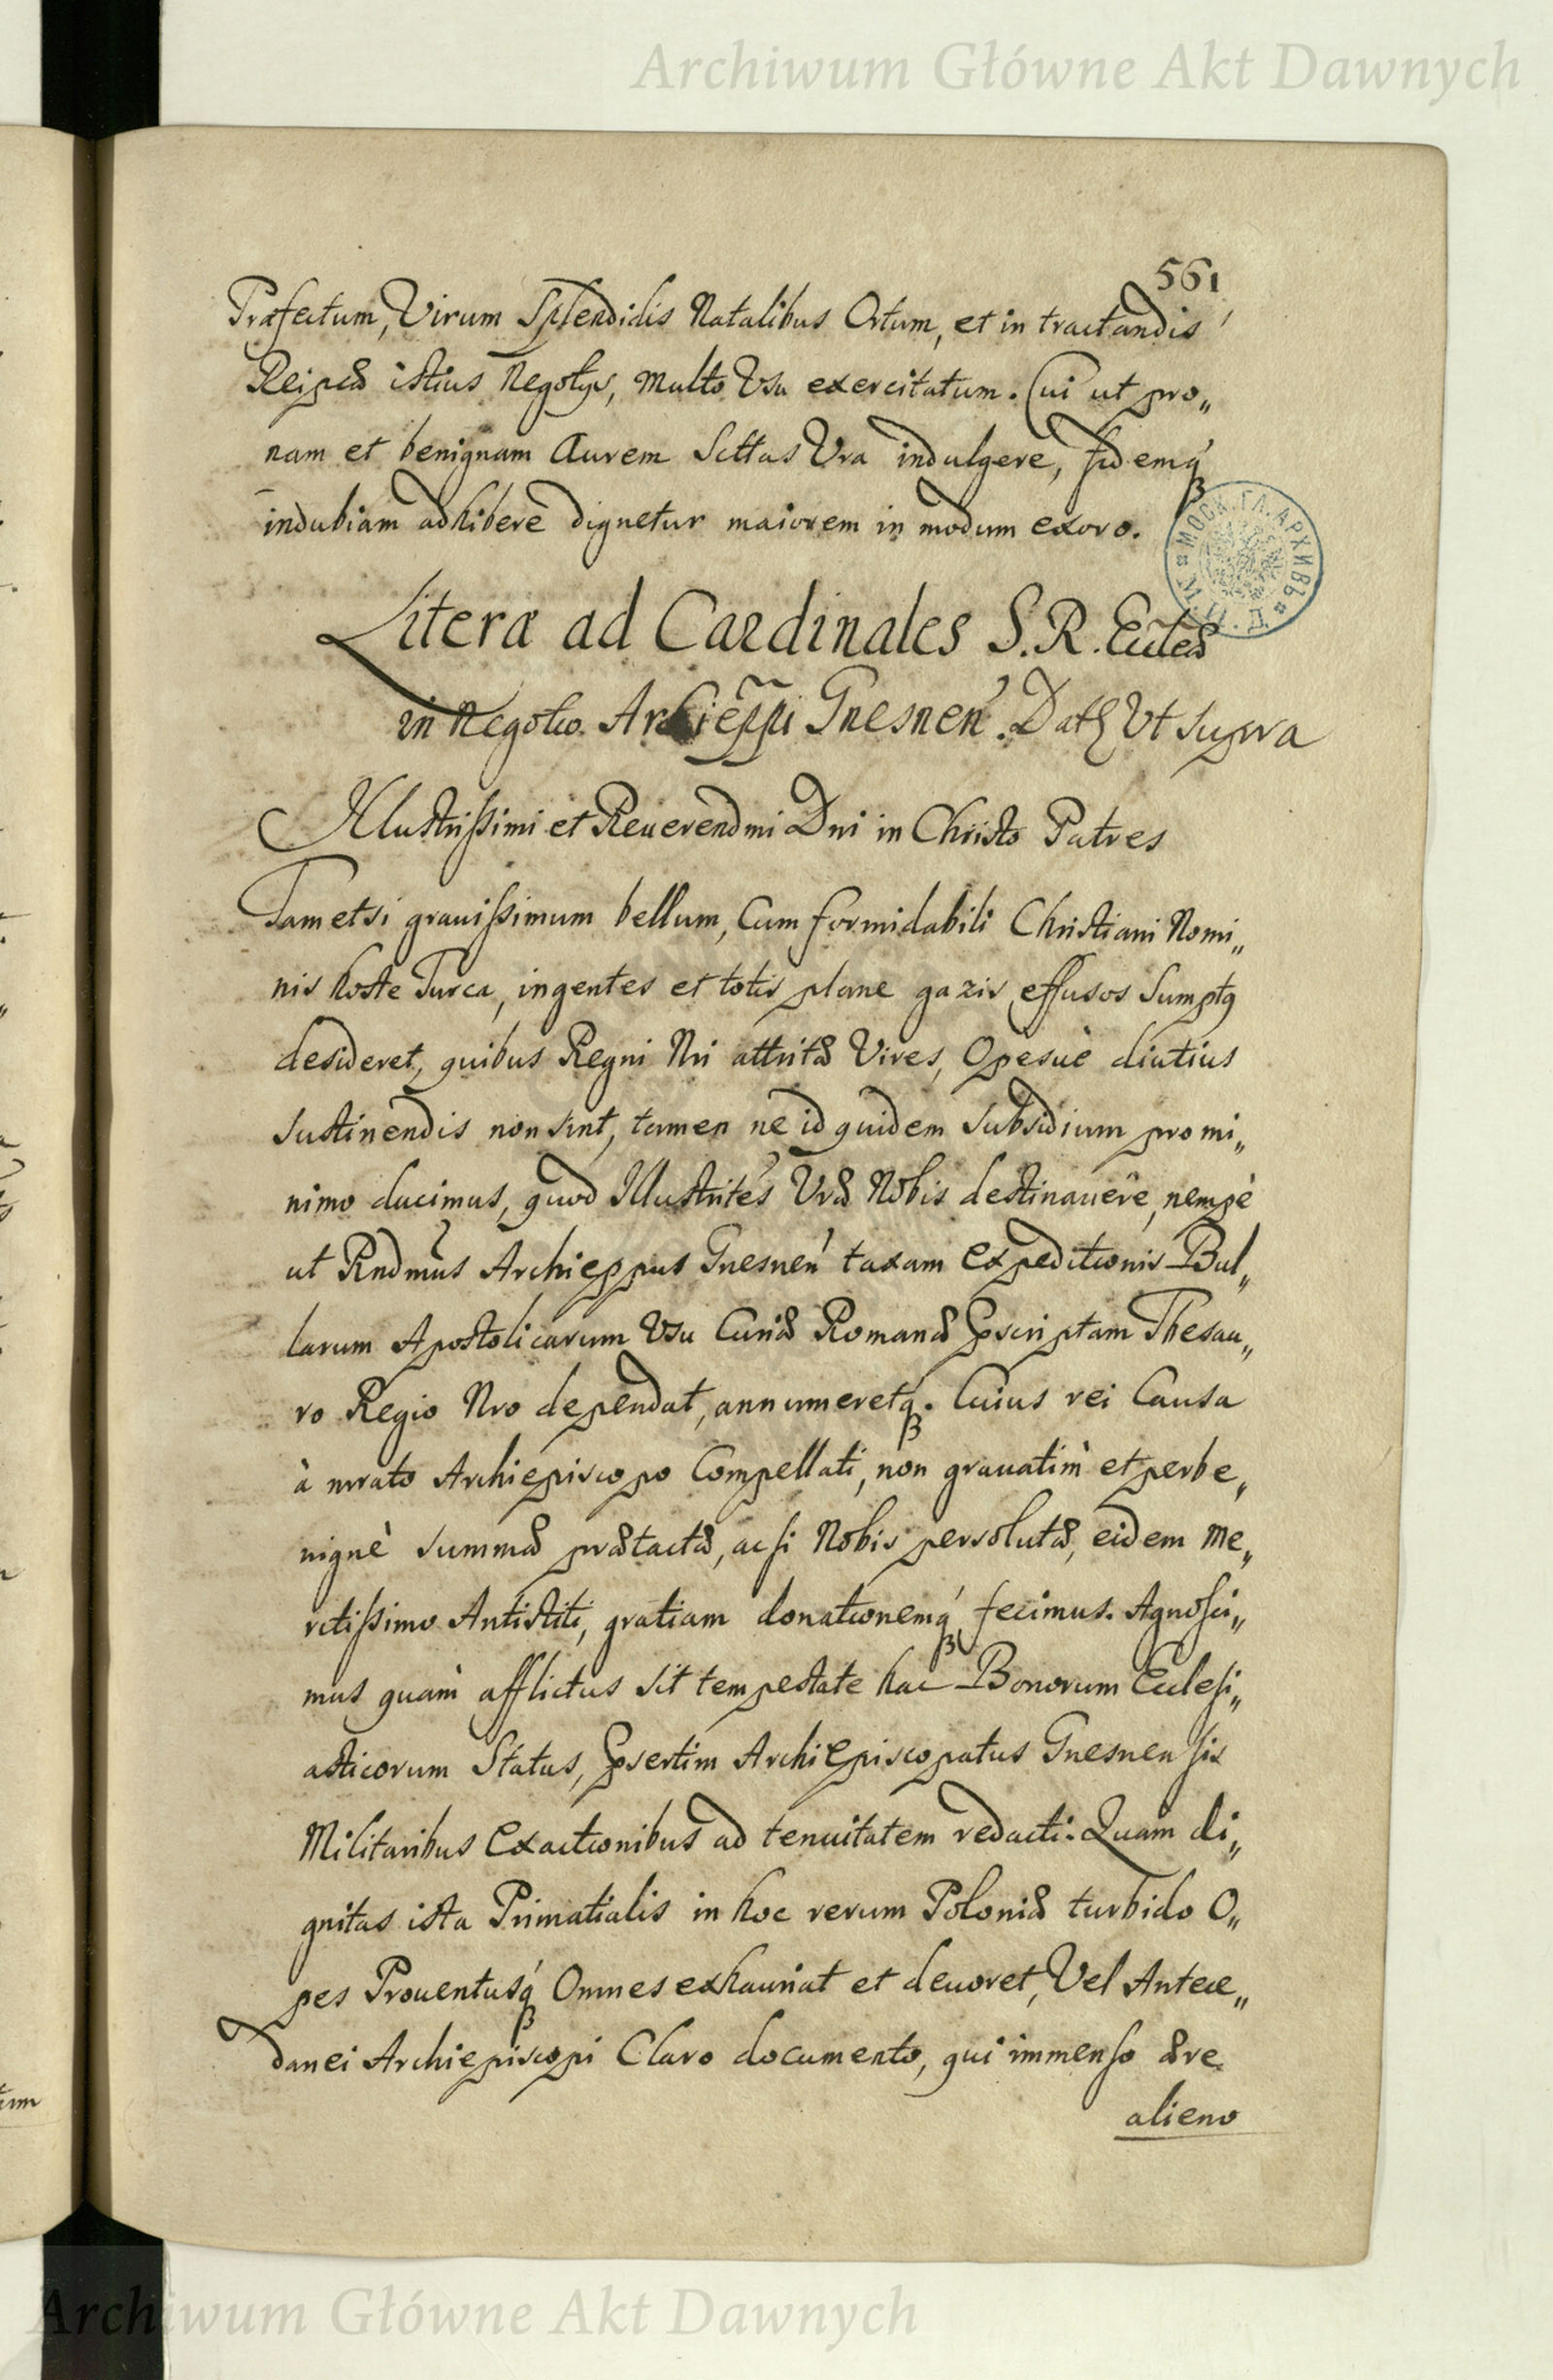 Archiwum Główne Akt Dawnych
561
Præfectum, Virum Splendidis Natalibus Ortum, et in tractandis
Reipcæ istius Negotys, multo Vsu exercitatum. Cui ut pro„
nam et benignam Aurem Scttas Vra indulgere, fidemq́
indubiam adhibere dignetur maiorem in modum exoro.
МОСК. ГЛ. АРХИВЪ
Literæ ad Cardinales S. R. Eccles
in Negotio Archieppi Gnesnen. Dat Vt supra
Illustrißimi et Reuerendmi Dni in Christo Patres
Tametsi grauißimum bellum, Cum formidabili Christiani Nomi„
nis hoste Turca, ingentes et totis plane gazis effusos Sumptq
desideret, quibus Regni Nri attritæ Vires, Opesuè diutius
sustinendis non sint, tamen ne id quidem Subsidium pro mi„
nimo ducimus, quod Illustrites Vræ Nobis destinauere, nempè
ut Rndmus Archieppus Gnesnen taxam expeditionis Bul„
larum Apostolicarum Vsu Curiæ Romanæ Pscriptam Thesau„
ro Regio Nro dependat, annumeretq́. Cuius rei Causa
à mrato Archiepiscopo Compellati, non grauatim et perbe„
nignè summæ prætactæ, ac si Nobis persolutæ, eidem Me„
ritißimo Antistiti, gratiam donationemq́ fecimus. Agnosci„
mus quàm afflictus sit tempestate hac Bonorum Ecclesi„
asticorum Status, Psertim Archiepiscopatus Gnesnensis
Militaribus Exactionibus ad tenuitatem redacti. Quam di„
gnitas ista Primatialis in hoc rerum Poloniæ turbido O„
pes Prouentusq́ Omnes exhauriat et deuoret, Vel Antece„
danei Archiepiscopi Claro documento, qui immenso ære
alieno
Archiwum Główne Akt Dawnych